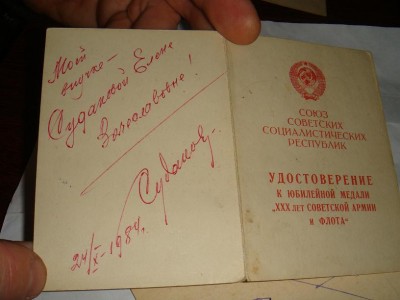 Моей
внучке —
Судаковой Елене
Вячеславовне!
Судаков
1984г.
СОЮЗ
СОВЕТСКИХ
СОЦИАЛИСТИЧЕСКИХ
РЕСПУБЛИК
УДОСТОВЕРЕНИЕ
К ЮБИЛЕЙНОЙ МЕДАЛИ
„XXX лет СОВЕТСКОЙ АРМИИ
и ФЛОТА“